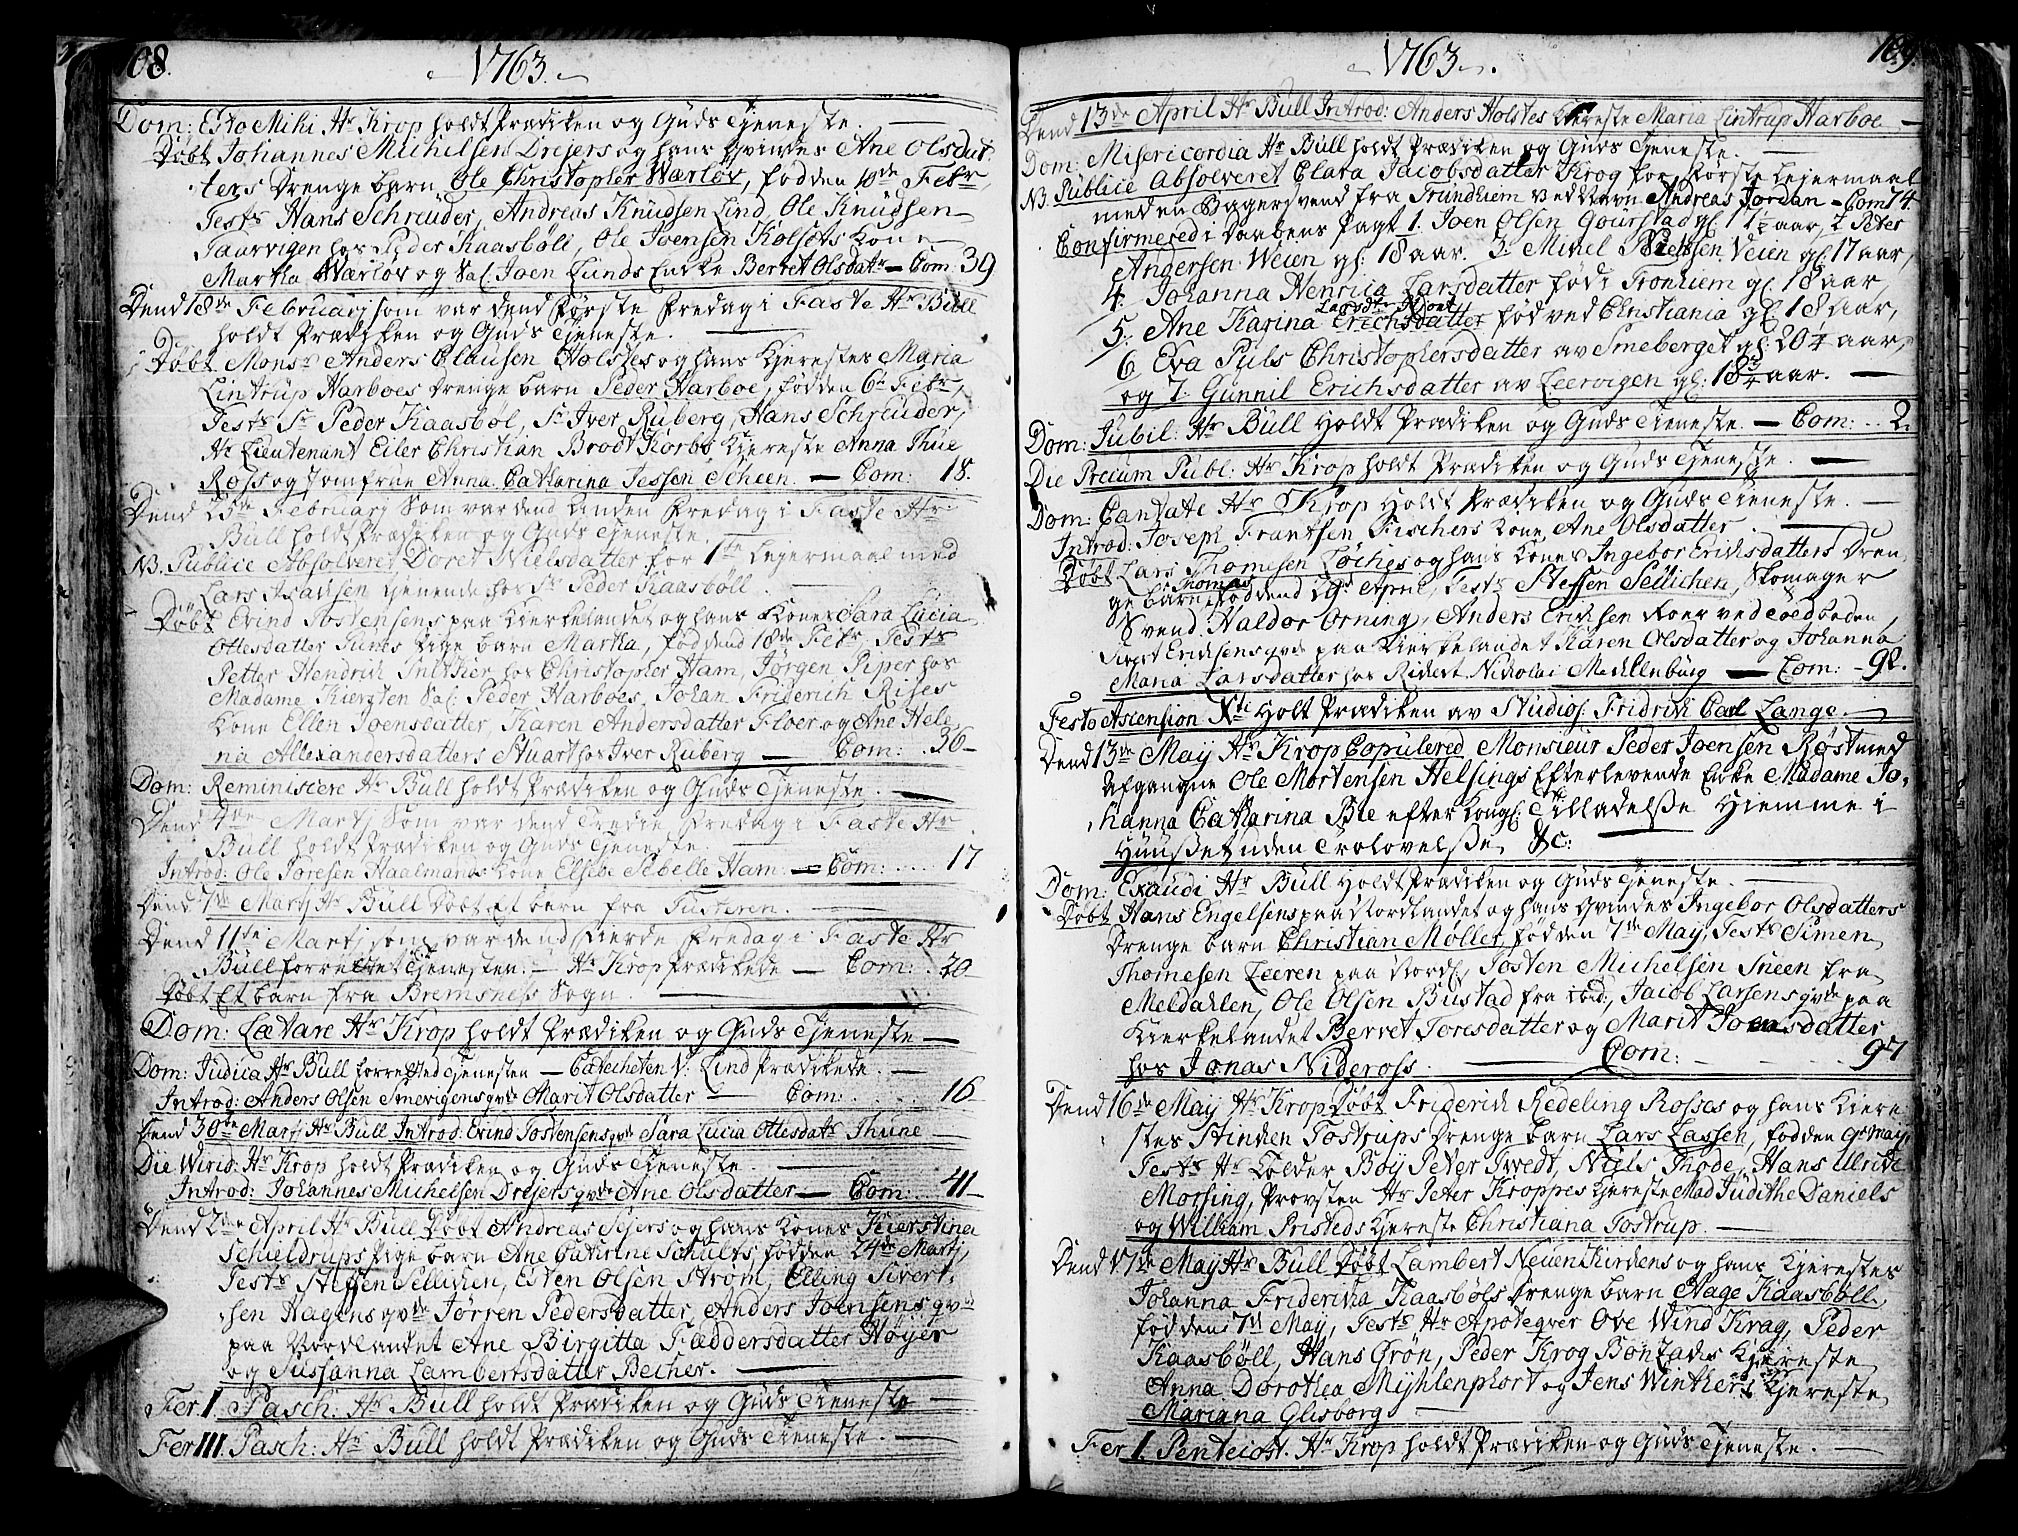 108.
1763.
Dom: Esto Mihi Hr Krop holdt Prædiken og Guds Tjeneste.
Döbt Johannes Michelsen Drejers og hans Qvindes Ane Olsdat
ters Drenge barn Ole Christopher Wærløv, född den 10de Febr,
Test: Hans Schreuder, Andreas Knudsen Lind, Ole Knudsen
Taarvigen hos Peder Kaasböll, Ole Joensen Kolsets Kone
Martha Wærlov og Sal: Joen Lunds Encke Berret Olsdatr — Com: 39
Dend 18de Februarj som var dend Første Fredag i Faste Hr Bull
holdt Prædiken og Guds Tjeneste.
Döbt Monsr Anders Clausen Holstes og hans Kjerestes Maria
Lintrup Harboes Drenge barn Peder Harboe, född den 6te Febr,
Test: Sr Peder Kaasböl, Sr Iver Ruberg, Hans Schreuder,
Hr Lieutenant Eiler Christian Brodtkorbs Kjereste Anna Thue
Ross og Jomfrue Anna Catharina Jessen Scheen. — Com: 18.
Dend 25de Februarj Som var dend Anden Fredag i Faste Hr
Bull holdt Prædiken og Guds Tjeneste.
NB. Publice Absolveret Doret Nielsdatter for 1te Lejermaal med
Lars tjenende hos Sr Peder Kaasböll.
Döbt Evind Tostensens paa Kierkelandet og hans Kones Sara Lucia
Ottesdatter Tunes Pige barn Martha, föd dend 18de Febr. Tests
Petter Hendrich hos Christopher Ham, Jörgen Piper hos
Madame Kiersten Sal: Peder Harboes, Johan Friderich Rises
Kone Ellen Joensdatter, Karen Andersdatter Floer og Ane Hele
na Allexandersdatters Stuart hos Iver Ruberg — Com: 36
Dom: Reminiscere Hr Bull holdt Prædiken og Guds Tjeneste.
Dend 4de Martj Som var dend Tredie Fredag i Faste Hr
Bull holdt Prædiken og Guds Tjeneste
Introd: Ole Toresen Haalmands Kone Elsebe Sibelle Ham. — Com: 17
Dend 7de Martj Hr Bull Döbt Et barn fra Tusteren.
Dend 11te Martj som var dend Fierde Fredag i Faste Hr
Bull forrettet Tjenesten. — Hr Krop Prædikede — Com: 20
Döbt Et barn fra Bremsness Sogn.
Dom: Lætare Hr Krop holdt Prædiken og Guds Tjeneste
Dom: Judica Hr Bull forretted Tjenesten — Catecheten N: Lind Prædikede.
Introd: Anders Olsen Smevigens qvde Marit Olsdatter — Com: 16
Dend 30te Martj Hr Bull Introd: Evind Tostensens qvde Sara Lucia Ottesdatr Thune
Die Virid: Hr Krop holdt Prædiken og Guds Tjeneste.
Introd: Johannes Michelsen Drejers qvde Ane Olsdatter — Com: 41
Dend 2den April Hr Bull Döbt Andreas Sejers og hans Kones Kierstina
Schieldrups Pige barn Ane Cathrine Schults, född den 24de Martj,
Tests Steffen Sellichen, Esten Olsen Ström, Elling Sivert-
sen Hagens qvde Jörren Pedersdatter, Anders Joensens qvde
paa Nordlandet Ane Birgitta Fæddersdatter Høyer
og Sussanna Lambertsdatter Becher.
Fer I. Pasch: Hr Bull holdt Prædiken og Guds Tjeneste
Fer III. Pasch: Hr Bull holdt Prædiken og Guds Tjeneste.
109.
1763.
Dend 13de April Hr Bull Introd: Anders Holstes Kjereste Maria Lintrup Harboe
Dom: Misericordia Hr Bull holdt Prædiken og Guds Tjeneste.
NB. Publice Absolveret Clara Jacobsdatter Krog for Første Lejermaal
med en svend fra Trundhiem ved Navn Andreas Jordan — Com 74.
Confirmered i Daabens Pagt 1. Joen Olsen gl: 17 1/2 aar, 2 Peter
Andersen Weien gl: 18 aar. 3. Michel Nielsen Veien gl: 17 aar,
4. Johanna Henrica Larsdatter föd i Tronhiem gl: 18 aar,
5. Ane Karina Erichsdatter föd ved Christiania gl: 18 aar,
6 Eva Puls Christophersdatter av Smeberget gl: 20 1/4 aar,
og 7. Gunnil Erichsdatter av Leervigen gl: 18 3/4 aar.
Dom: Jubil: Hr Bull Holdt Prædiken og Guds Tjeneste. — Com: .. 2.
Die Precum Publ: Hr Krop holdt Prædiken og Guds Tjeneste.
Dom: Cantate Hr Krop Holdt Prædiken og Guds Tjeneste.
Introd: Joseph Frantsen Fischers Kone Ane Olsdatter.
Döbt Lars Thomesen Löchies og hans Kones Ingebor Erichsdatters Dren
ge barn Thomas föd dend 29de April, Tests Steffen Sellichen, Skomager
Svend Haldor Orning, Anders Erichsen Roer ved Toldboden,
Sivert Erichsens qvde paa Kierkelandet Karen Olsdatter og Johanna
Maria Larsdatter hos Richert Nicholai Mechlenburg — Com: — 92.
Festo Ascension Xti Holt Prædiken av Studios. Fridrik Carl Lange
Dend 13de Maij Hr Krop Copulered Monsieur Peder Joensen Røst med
afgangne Ole Mortensen Helsings Efterlevende Enke Madame Jo-
hanna Catharina Bie efter Kongl: Tilladelsse Hiemme i
Huusset uden Trolovelsse, &c:
Dom: Exaudi Hr Bull Holdt Prædiken og Guds Tjeneste.
Döbt Hans Engelsens paa Nordlandet og hans Qvindes Ingebor Olsdatters
Drenge barn Christian Møller, född den 7de May, Tests Simen
Thomesen Leeren paa Nordl: Tosten Michelsen Sneen fra
Meldahlen, Ole Olsen Bustad fra ibid:, Jacob Larsens qvde paa
Kierkelandet Berret Toresdatter og Marit Joensdatter
hos Jonas Nideross. Com: 97
Dend 16de May Hr Krop Döbt Friderich Redeling Rosses og hans Kjere
stes Stinchen Tostrups Drenge barn Lars Lassen, född den 9de May,
Tests Hr Tolder Boy Peter Tvedt, Niels Thode, Hans Ulrich
Morsing, Provsten Hr Peter Kroppes Kjereste Mad Judithe Daniels
og William Pristeds Kjereste Christiana Tostrup.
Dend 17de May Hr Bull Döbt Lambert Neuenkirchens og hans Kjerestes
Johanna Friderica Kaasböls Drenge barn Aage Kaasböll,
född den 7de May, Tests Hr Apoteqver Ove Wind Krag, Peder
Kaasböll, Hans Grön, Peder Krog Bontzachs Kjereste
Anna Dorothea Myhlenphort og Jens Winthers Kjereste
Mariana Glisborg
Fer I. Pentecost. Hr Krop holdt Prædiken og Guds Tjeneste.